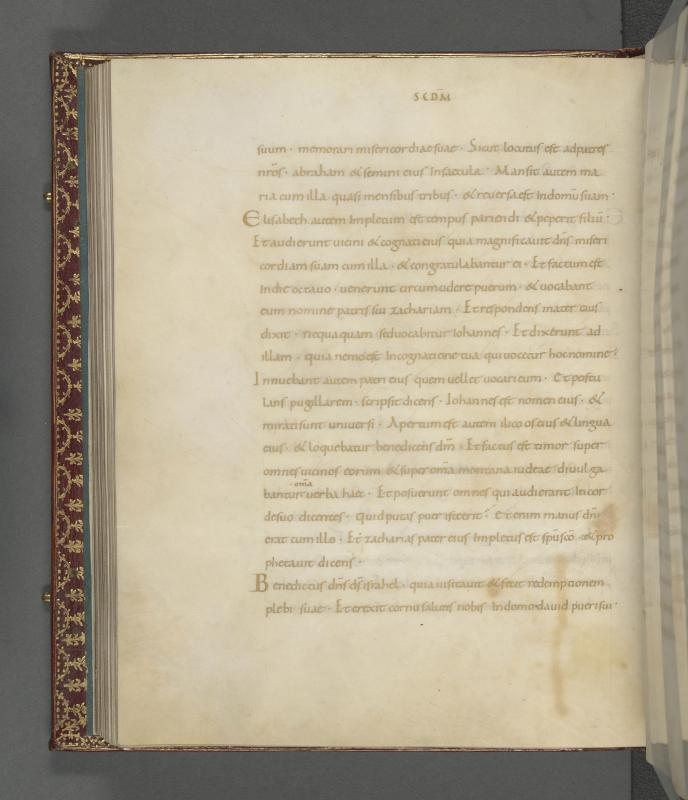 SCDM̄
suum · memorari misericordiae suae · Sicut locutus est adpatres
nr̄os · abraham & semini eius Insaecula · Mansit autem ma
ria cum illa quasi mensibus tribus · & reuersa est Indomū suam ·
Elisabeth autem Impletum est tempus pariendi & peperit filiū ·
Et audierunt uicini & cognati eius quia magnificauit dn̄s miseri
cordiam suam cum illa · & congratulabantur ei · Et factum est
Indie octauo · uenerunt circumcidere puerum · & uocabant
eum nomine patris sui zachariam · Et respondens mater eius
dixit · nequaquam sed uocabitur Iohannes · Et dixerunt ad
illam · quia nemo est Incognatione tua qui uocetur hoc nomine ·
Innuebant autem patri eius quem uellet uocari eum · Et postu
lans pugillarem · scripsit dicens · Iohannes est nomen eius · &
mirati sunt uniuersi · Apertum est autem ilico os eius & lingua
eius · & loquebatur benedicens dm̄ · Et factus est timor super
omnes uicinos eorum & super om̄a montana iudeae diuulga
om̄a
bantur uerba haec · Et posuerunt omnes qui audierant Incor
de suo dicentes · Quid putas puer iste erit · Etenim manus dn̄i
erat cum illo · Et zacharias pater eius Impletus est sp̄u sc̄o · & pro
phetauit dicens ·
Benedictus dn̄s ds̄ israhel · quia uisitauit & fecit redemptionem
plebi suae · Et erexit cornu salutis nobis Indomo dauid pueri sui ·